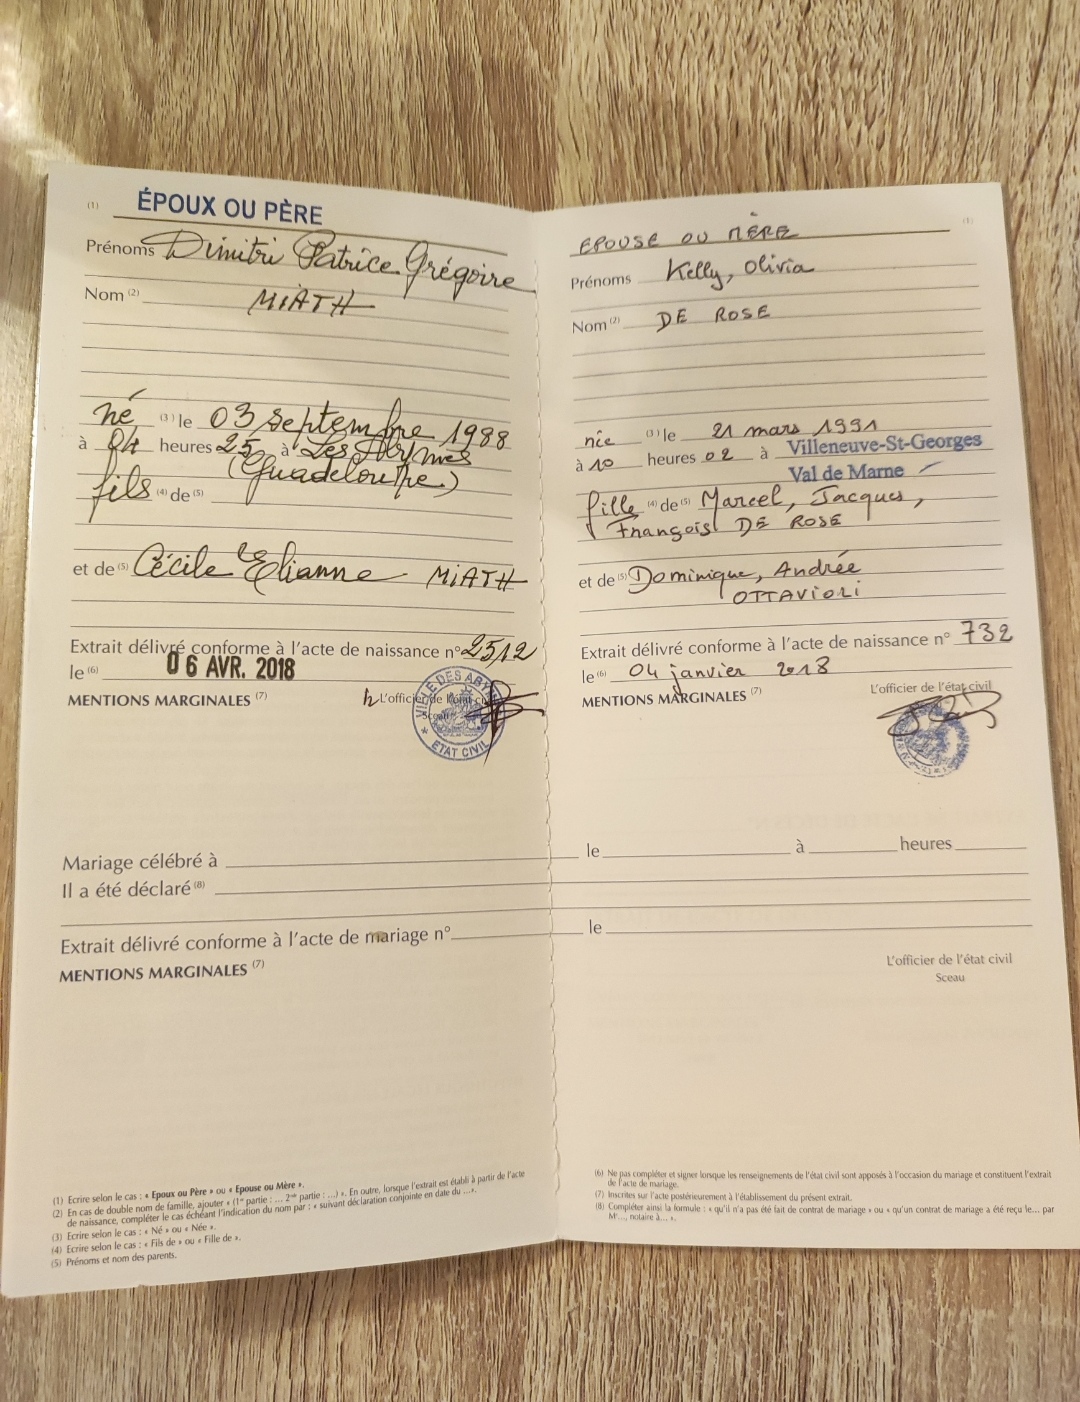 (1) ÉPOUX OU PÈRE
Prénoms Dimitri Patrice Grégoire
Nom (2) MIATH
né (3) le 03 septembre 1988
à 04 heures 25 à Les Abymes
(Guadeloupe)
fils (4) de (5)
et de (5) Cécile Elianne MIATH
Extrait délivré conforme à l'acte de naissance n° 2512
le (6) 06 AVR. 2018
MENTIONS MARGINALES (7) L'officier de l'état civil
Sceau
VILLE DES ABYMES
ETAT CIVIL
(1)
EPOUSE OU MÈRE
Prénoms Kelly, Olivia
Nom (2) DE ROSE
née (3) le 21 mars 1991
à 10 heures 02 à Villeneuve-St-Georges
Val de Marne
fille (4) de (5) Marcel, Jacques,
François DE ROSE
et de (5) Dominique, Andrée
OTTAVIOLI
Extrait délivré conforme à l'acte de naissance n° 732
le (6) 04 janvier 2018
MENTIONS MARGINALES (7) L'officier de l'état civil
Mariage célébré à le à heures
Il a été déclaré (8)
Extrait délivré conforme à l'acte de mariage n° le
MENTIONS MARGINALES (7)
L'officier de l'état civil
Sceau
(1) Ecrire selon le cas : « Epoux ou Père » ou « Epouse ou Mère ».
(2) En cas de double nom de famille, ajouter « (1re partie : ... 2nde partie : ...) ». En outre, lorsque l'extrait est établi à partir de l'acte
de naissance, compléter le cas échéant l'indication du nom par : « suivant déclaration conjointe en date du ... ».
(3) Ecrire selon le cas : « Né » ou « Née ».
(4) Ecrire selon le cas : « Fils de » ou « Fille de ».
(5) Prénoms et nom des parents.
(6) Ne pas compléter et signer lorsque les renseignements de l'état civil sont apposés à l'occasion du mariage et constituent l'extrait
de l'acte de mariage.
(7) Inscrites sur l'acte postérieurement à l'établissement du présent extrait.
(8) Compléter ainsi la formule : « qu'il n'a pas été fait de contrat de mariage » ou « qu'un contrat de mariage a été reçu le... par
Me..., notaire à... ».